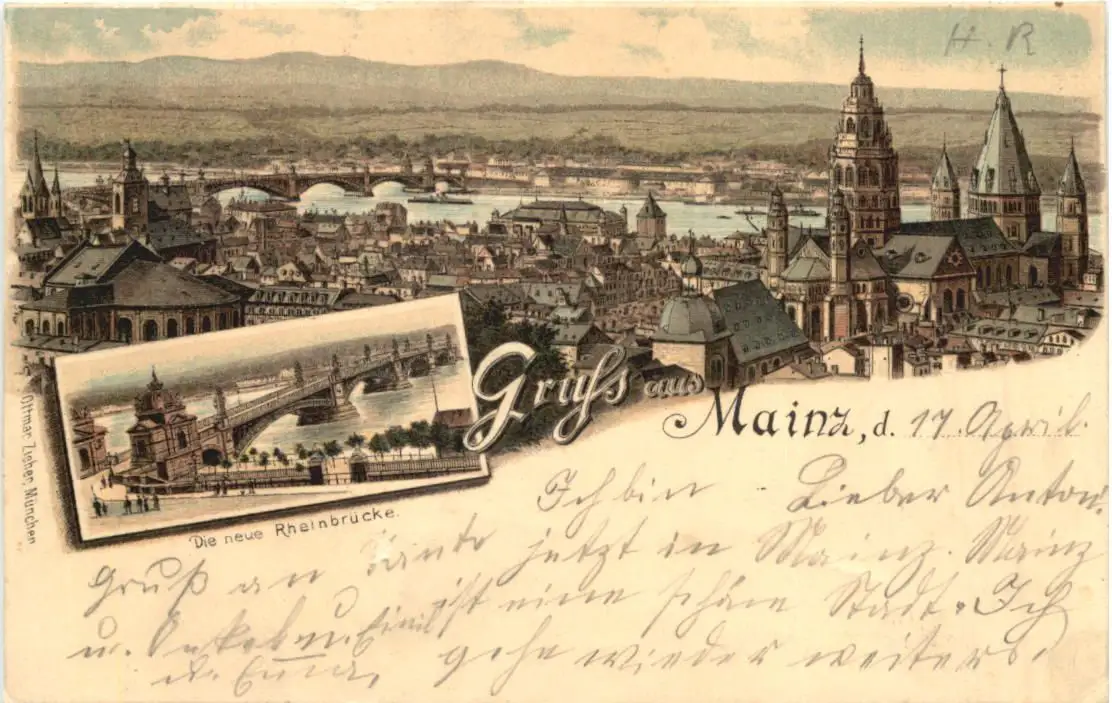 H. R
Gruss aus
Mainz, d. 17. April.
Lieber Anton.
Ich bin
jetzt in Mainz. Mainz
ist eine schöne Stadt. Ich
gehe wieder weiters.
Gruß an Tante
u. Onkel u. Emil
u. Emma,
Die neue Rheinbrücke.
Ottmar Zieher, München